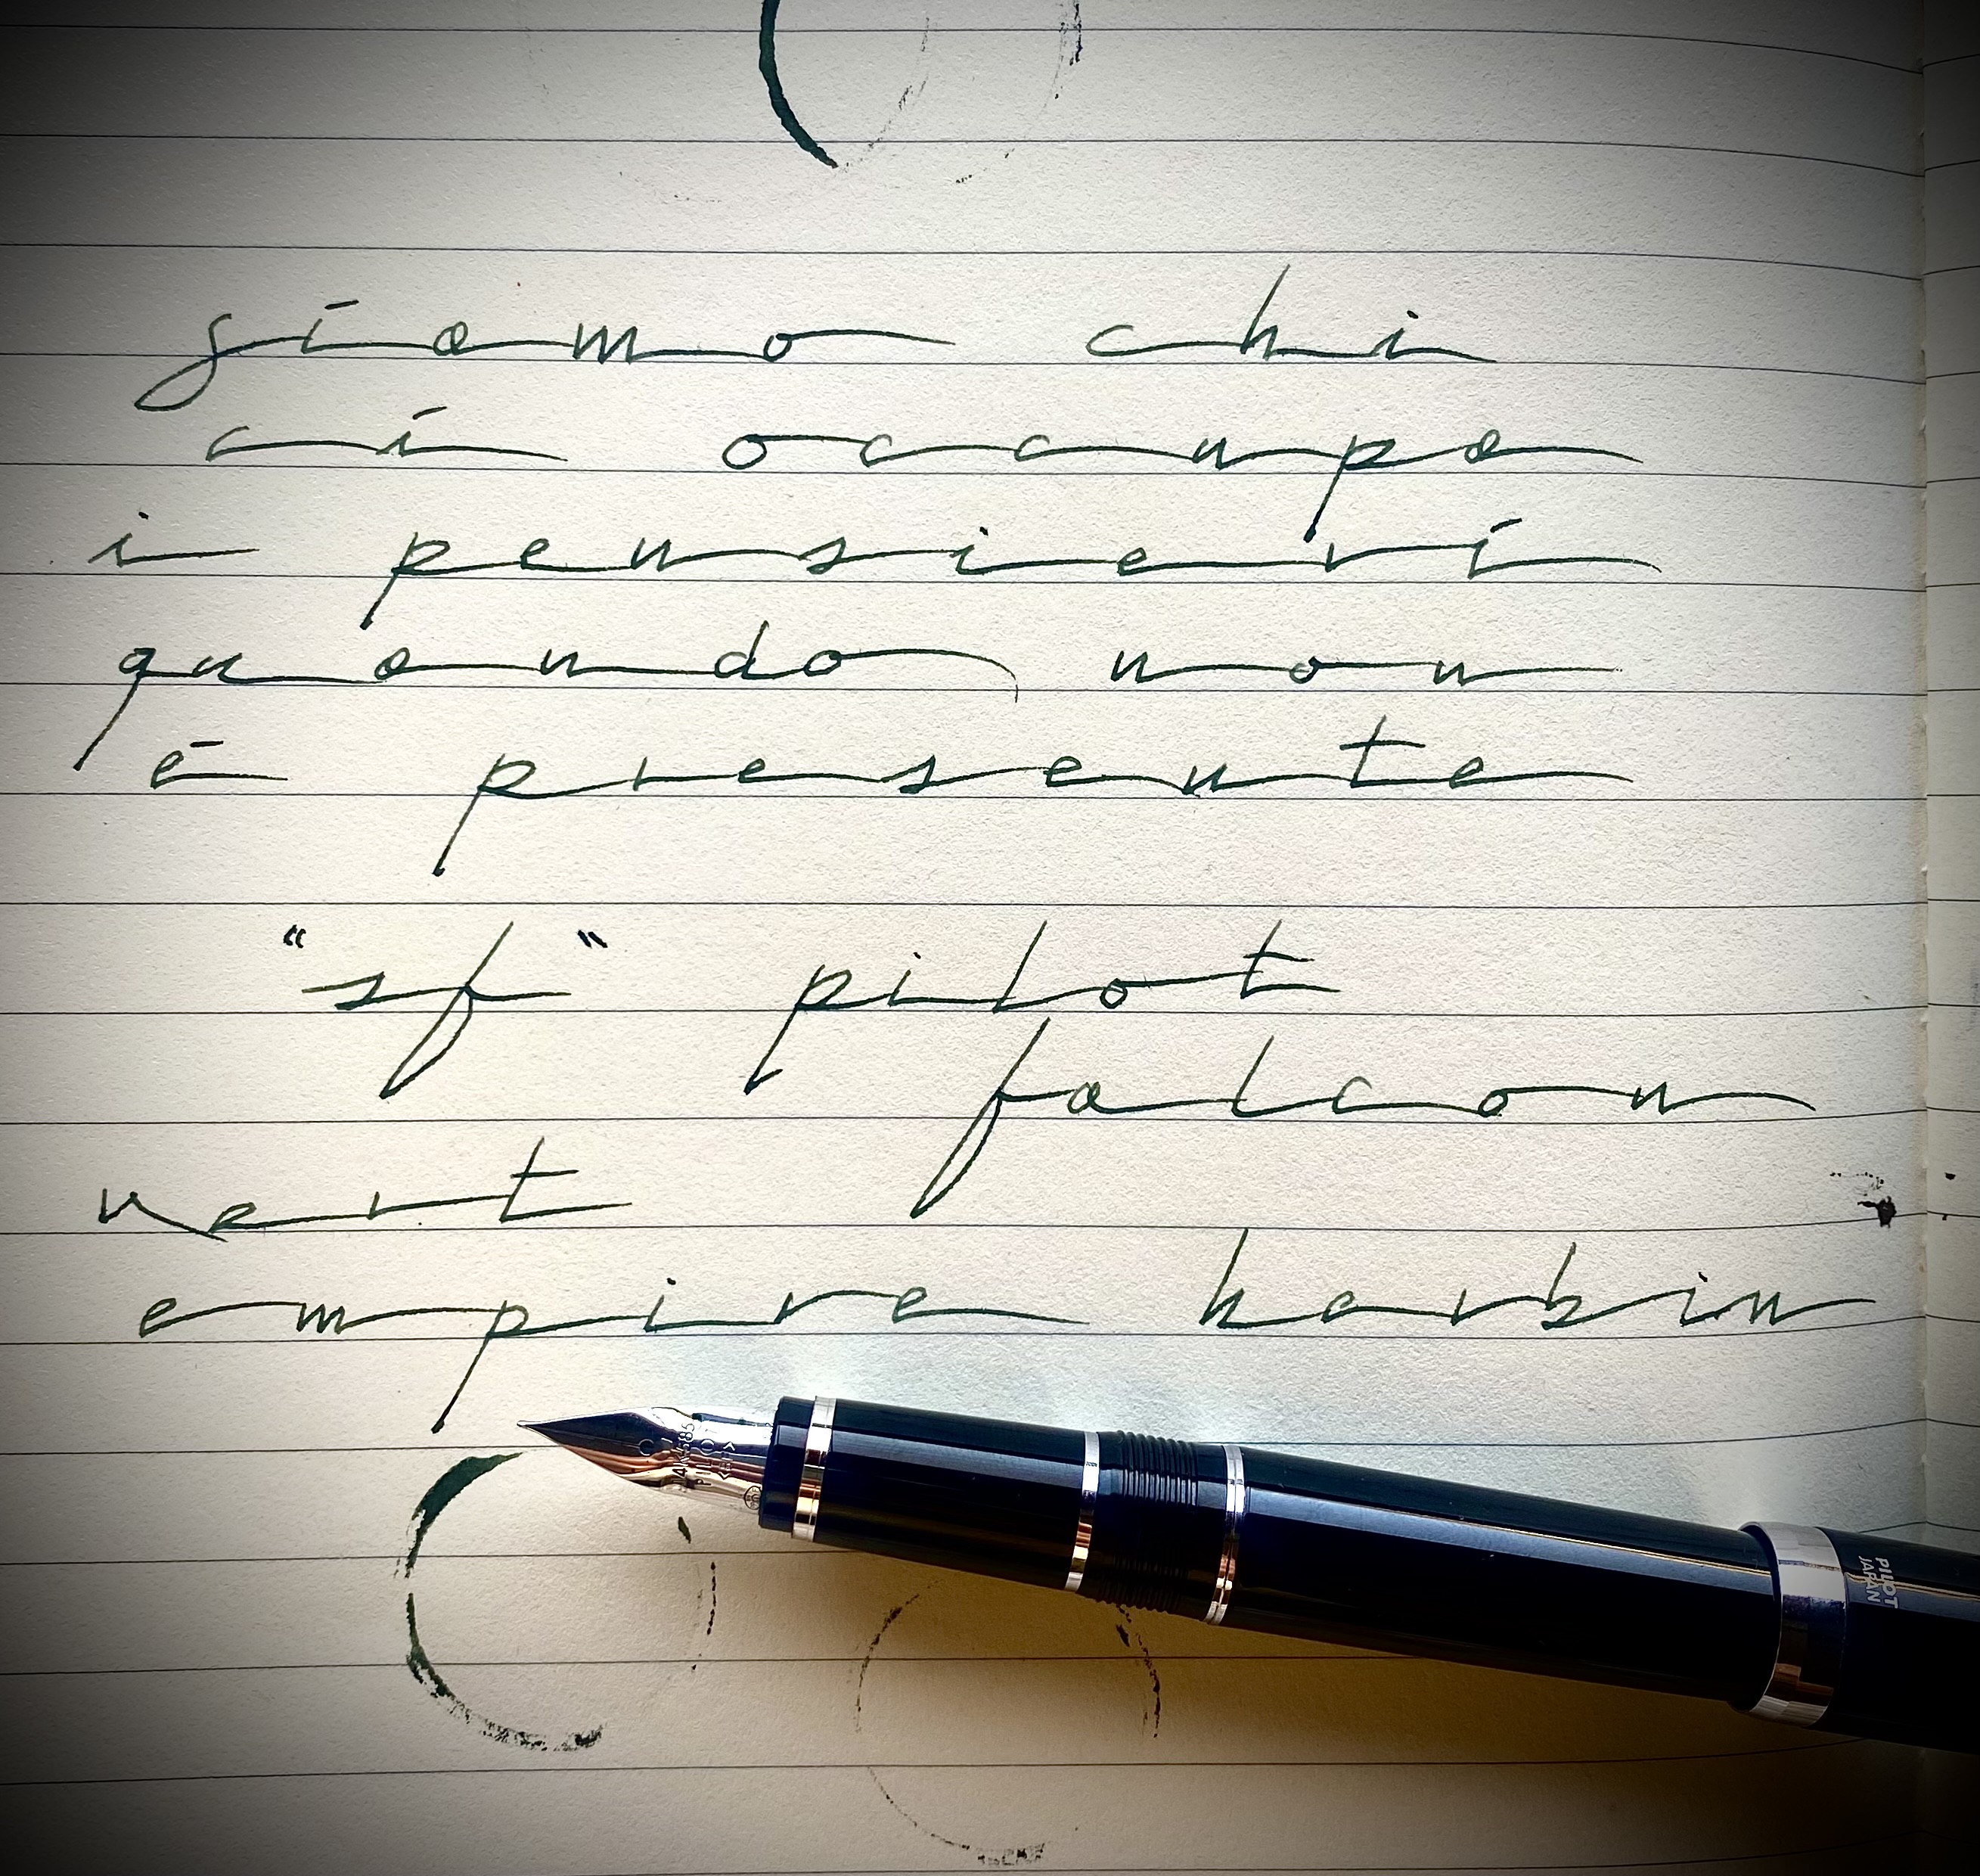 siamo chi
ci occupa
i pensieri
quando non
è presente
"sf" pilot
falcon
vert
empire harbin
PILOT
JAPAN
14K585
PILOT